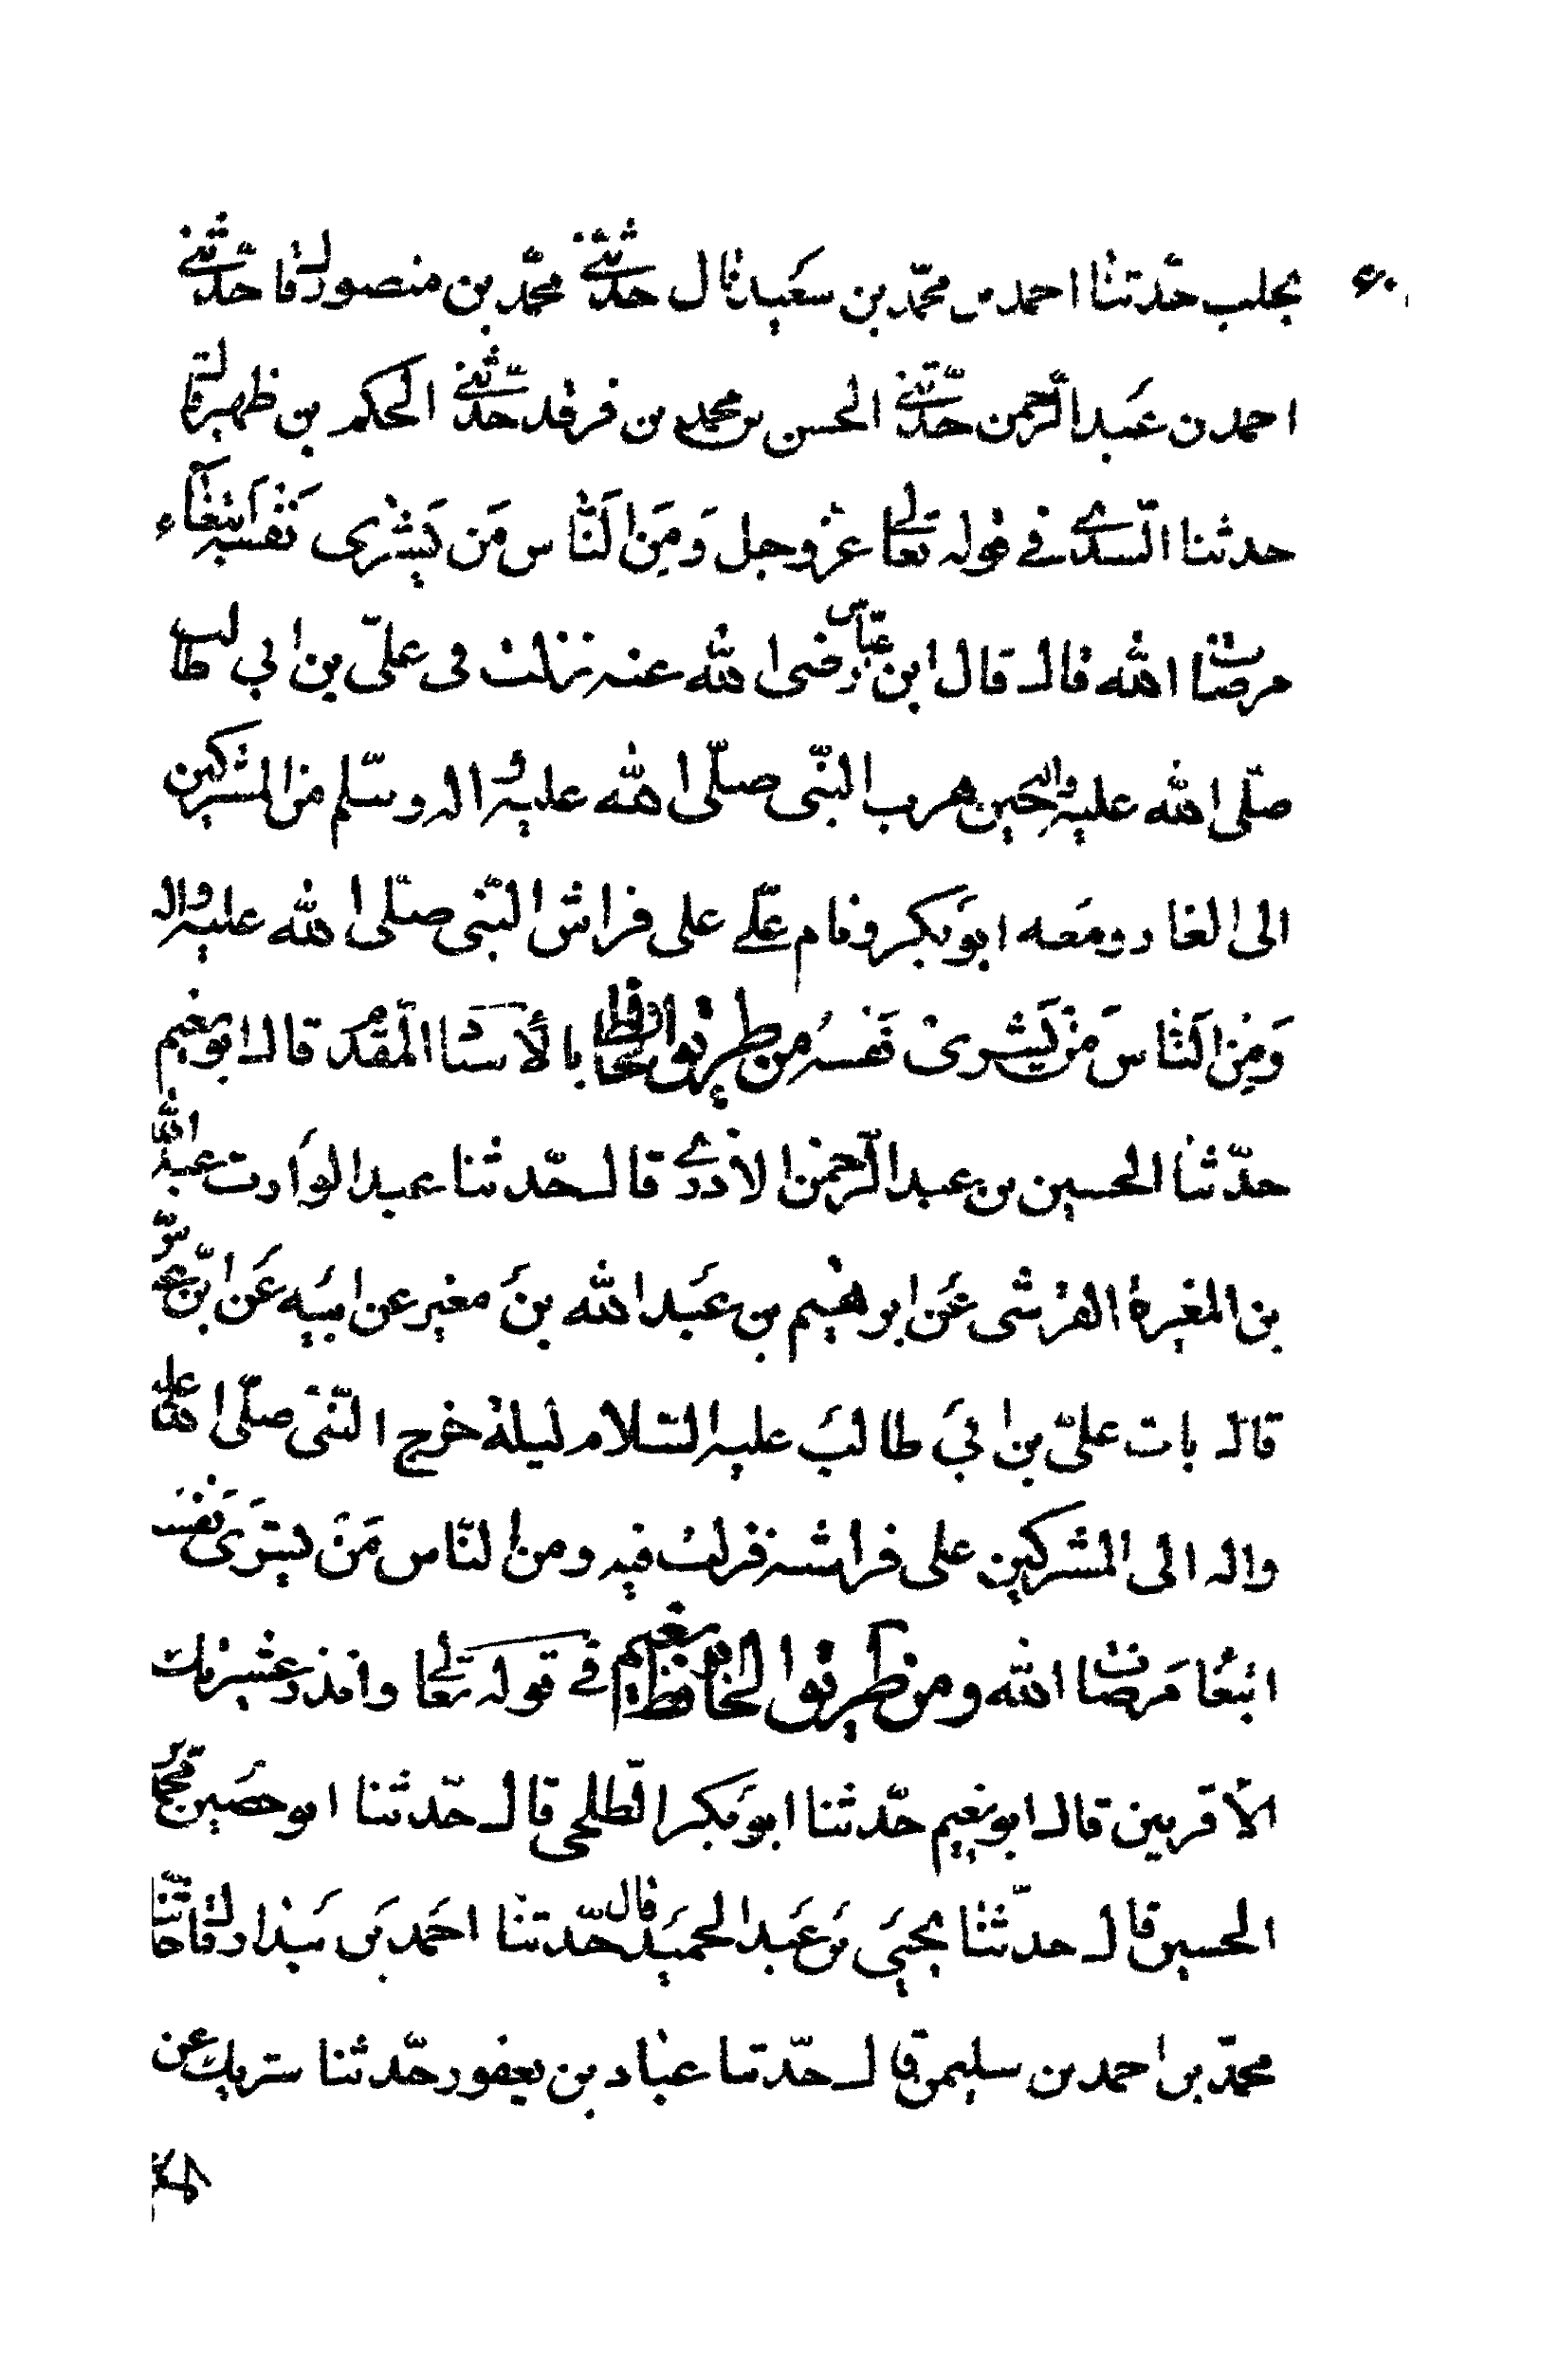 بحلب حدّثنا احمد بن محمّد بن سعيد قال حدّثنى محمّد بن منصور قال حدّثنى
احمد بن عبد الرّحمن حدّثنى الحسن بن محمد بن فرقد حدّثنى الحكم بن ظهير قال
حدثنا السّدى فى قوله تعالى عزّ وجل وَمِنَ النّاس مَن يَشْرى نَفْسه ابتغاء
مرضات الله قال قال ابن عبّاس رضى الله عنه نزلت فى علىّ بن ابي طالب
صلّى الله عليه واله حين هرب النّبى صلّى الله عليه واله وسّلم من المشركين
الى الغار ومعه ابوبكر ونام علّى على فراش النّبى صلّى الله عليه واله
وَمِنَ النّاسَ مَنْ يَشْرىْ نَفْسهُ ومن طريق الحافظ بالأسناد المقدّم قال ابو نعيم
حدّثنا الحسين بن عبد الرّحمن الازدى قال حّدثنا عبد الوارث عبد الله
بن المغيرة القرشى عَن ابرهيم بن عَبد الله بن مغير عن ابيه عَن ابن عبّاس
قال بات علىّ بن ابى طالب عليه السّلام ليلة خرج النّبى صلّى الله عليه
واله الى المشركين على فراشه فنزلت فيه ومن النّاس مَن يشرَى نَفْسه
ابتغا مَرضات الله ومن طريق الحافظ ابو نعيم فى قوله تعالى وانذر عشيرتك
الأقربين قال ابو نعيم حدّثنا ابو بكر الطّلحى قال حدّثنا ابو حصُين محمّد بن
الحسين قال حدّثنا يحيَى بن عَبد الحميَد قال حدّثنا احَمد بن
محمّد بن احمد بن سليمن قال حدّثنا عبّاد بن يعقور حدّثنا شريك عن